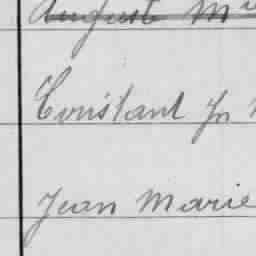 Auguste M
Constant Jn
Jean Marie